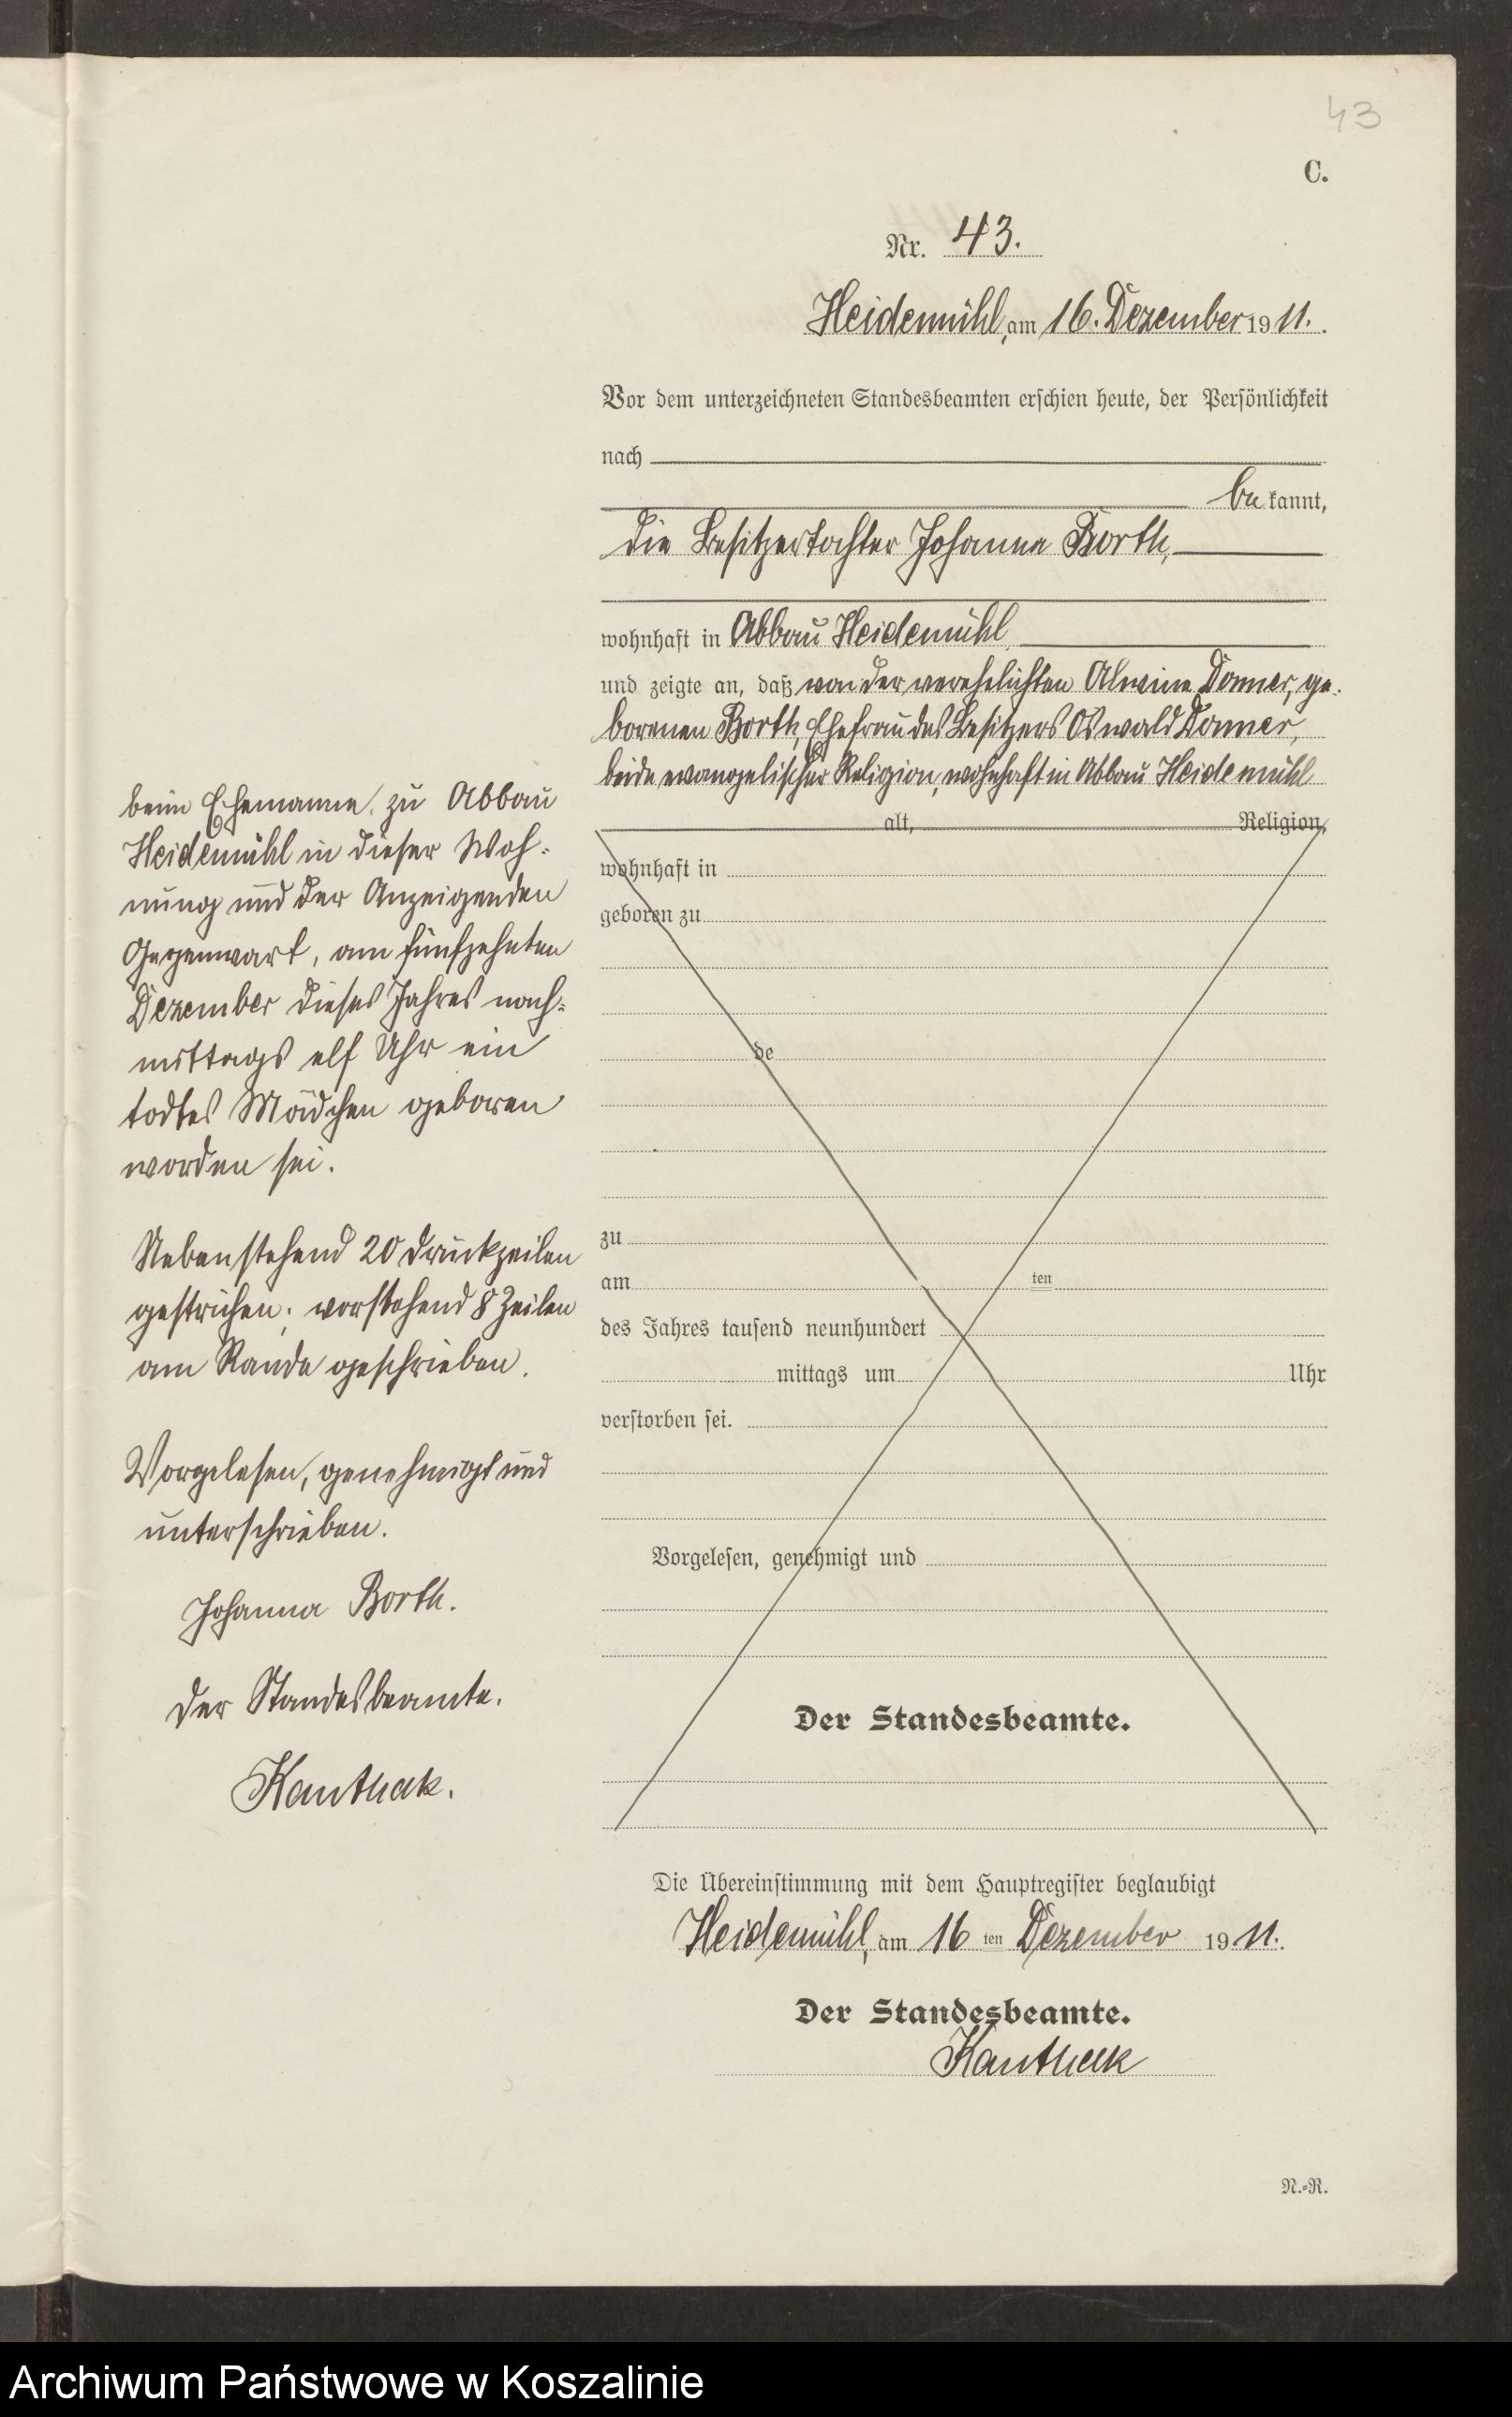 43
C.
Nr. 43.
Heidemühl, am 16. Dezember 1911.
Vor dem unterzeichneten Standesbeamten erschien heute, der Persönlichkeit
nach
be kannt,
die Besitzertochter Johanna Borth,
wohnhaft in Abbau Heidemühl,
und zeigte an, daß von der verehelichten Alwine Donner, ge-
borenen Borth, Ehefrau des Besitzers Oswald Donner,
beide evangelischer Religion, wohnhaft in Abbau Heidemühl
alt, Religion,
wohnhaft in
geboren zu
de
zu
am ten
des Jahres tausend neunhundert
mittags um Uhr
verstorben sei.
Vorgelesen, genehmigt und
Der Standesbeamte.
beim Ehemanne, zu Abbau
Heidemühl in dieser Woh-
nung und der Anzeigenden
Gegenwart, am fünfzehnten
Dezember dieses Jahres nach-
mittags elf Uhr ein
todtes Mädchen geboren
worden sei.
Nebenstehend 20 Druckzeilen
gestrichen; vorstehend 8 Zeilen
am Rande geschrieben.
Vorgelesen, genehmigt und
unterschrieben.
Johanna Borth.
Der Standesbeamte.
Kanthak.
Die Übereinstimmung mit dem Hauptregister beglaubigt
Heidemühl, am 16 ten Dezember 1911.
Der Standesbeamte.
Kanthak
N.-R.
Archiwum Państwowe w Koszalinie